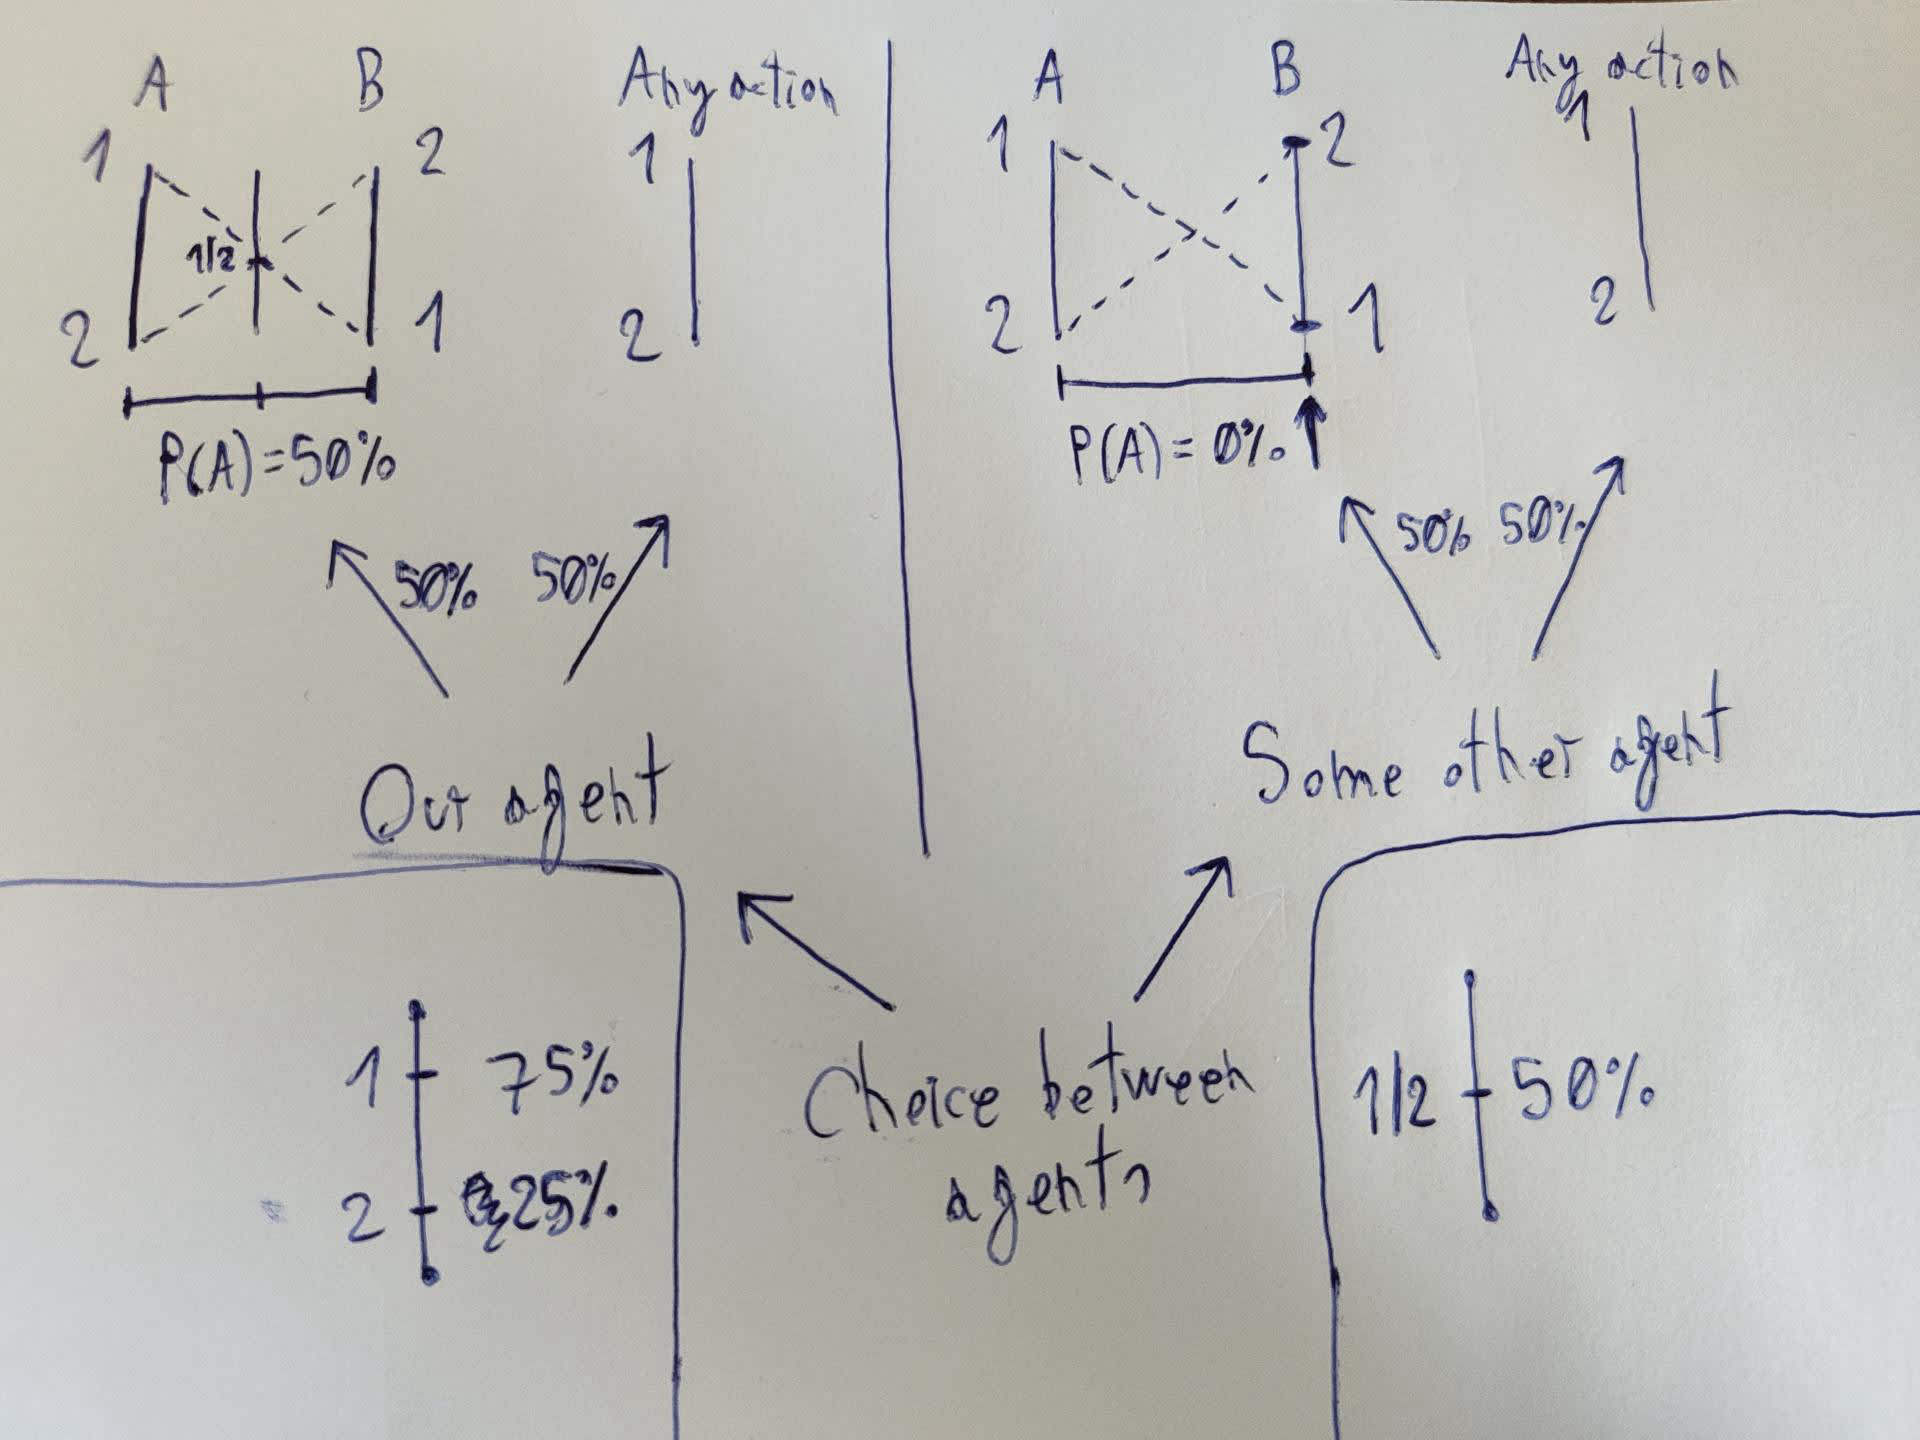 A B Any action
1 2 1
1/2
2 1 2
P(A)=50%
50% 50%
Our agent
A B Any action
1 2 1
2 1 2
P(A)=0%
50% 50%
Some other agent
1 75%
2 25%
Choice between
agents
1/2 50%